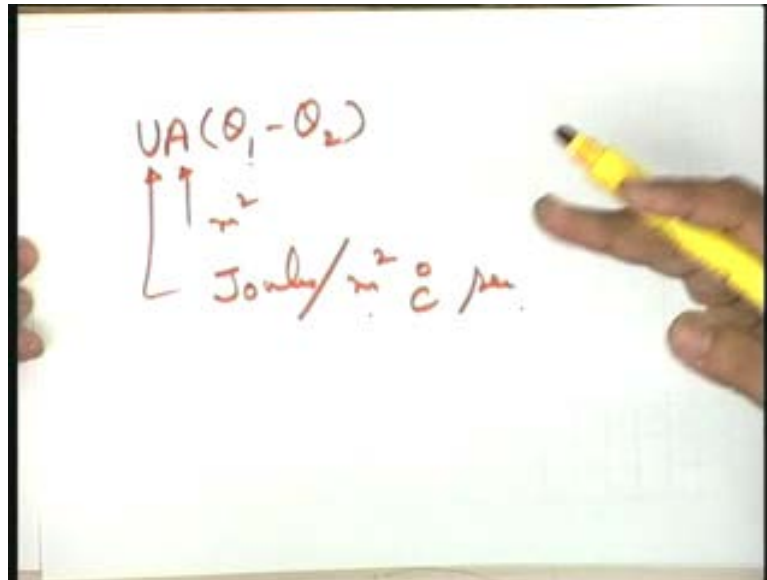 UA(θ₁ - θ₂)
m²
Joules/m² °C sec.